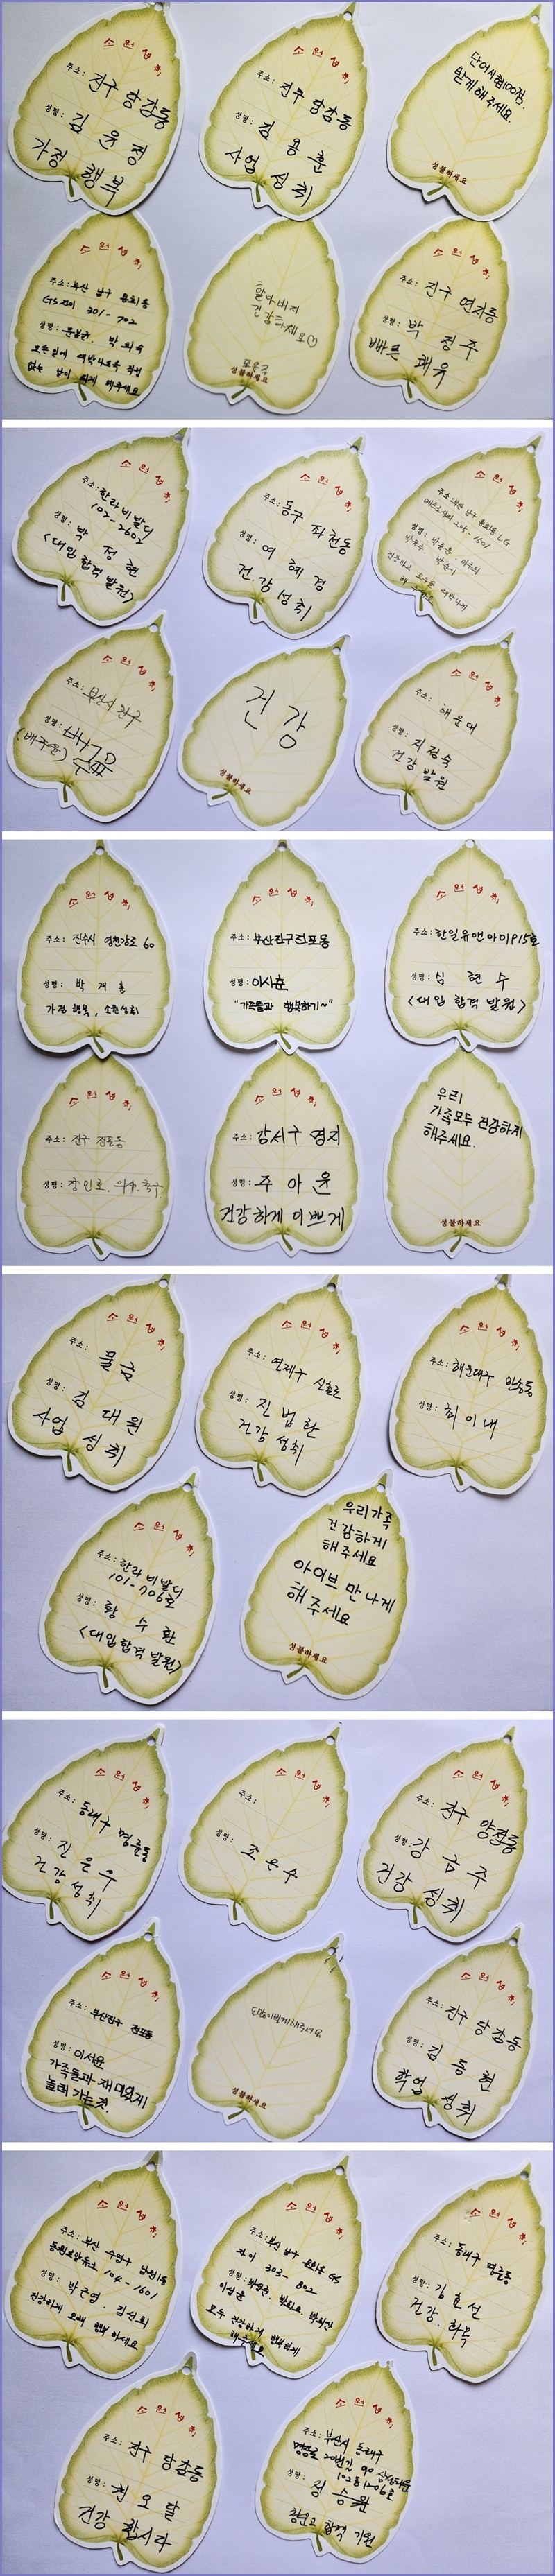 소원성취
주소: 진구 당감동
성명: 김 윤 정
가정 행복
소원성취
주소: 진구 당감동
성명: 김 용 훈
사업 성취
단어시험100점.
맞게 해 주세요.
성불하세요
소원성취
주소: 부산 남구 용호동
GS자이 301-702
성명:
소원성취
할아버지
건강하세요♡
성불하세요
소원성취
주소: 진구 연지동
성명: 박 정 주
빠른 쾌유
소원성취
주소: 한라비발디
107-2602
성명: 박 정 현
<대입 합격 발원>
소원성취
주소: 동구 좌천동
성명: 여 혜 경
건강성취
소원성취
주소: 부산 남구 용호동 LG
성명:
소원성취
주소: 부산시 진구
성명:
건강
성불하세요
소원성취
주소: 해운대
성명: 지정숙
건강 발원
소원성취
주소: 진주시 영천강로 60
성명: 박 재 훈
가정 행복, 소원성취
소원성취
주소: 부산진구전포동
성명: 이시훈
"가족들과 행복하기~"
소원성취
주소: 한일유앤아이 915호
성명: 심 현 수
<대입 합격 발원>
소원성취
주소: 진구 전포동
성명: 장민호.
소원성취
주소: 강서구 명지
성명: 주 아 윤
건강하게 이쁘게
우리
가족모두 건강하게
해주세요.
성불하세요
소원성취
주소: 물금
성명: 김 대 원
사업 성취
소원성취
주소: 연제구
성명: 진 법 환
건강 성취
소원성취
주소: 해운대구 반송동
성명: 최 이 내
소원성취
주소: 한라비발디
101-706호
성명: 황 수 환
<대입합격 발원>
우리가족
건강하게
해주세요
아이브 만나게
해 주세요
성불하세요
소원성취
주소: 동래구 명륜동
성명: 진 은 우
건강성취
소원성취
주소:
성명: 조 은 수
소원성취
주소: 진구 양정동
성명: 강 금 주
건강 성취
소원성취
주소: 부산진구 전포동
성명: 이서윤
가족들과 재미있게
놀러 가는것.
성불하세요
소원성취
주소: 진구 당감동
성명: 김 동 현
학업 성취
소원성취
주소: 부산 수영구 남천1동
104-1601
성명: 박근영. 김선희
건강하게 오래 행복 하세요
소원성취
주소: 부산 남구 용호동 GS
자이 303-802
성명:
모두 건강하게 행복하게
해주세요
소원성취
주소: 동래구 명륜동
성명: 김 효 선
건강. 화목
소원성취
주소: 진구 당감동
성명: 천 오 달
건강 합시다
소원성취
주소: 부산시 동래구
102동1206호
성명: 정 승 완
합격 기원